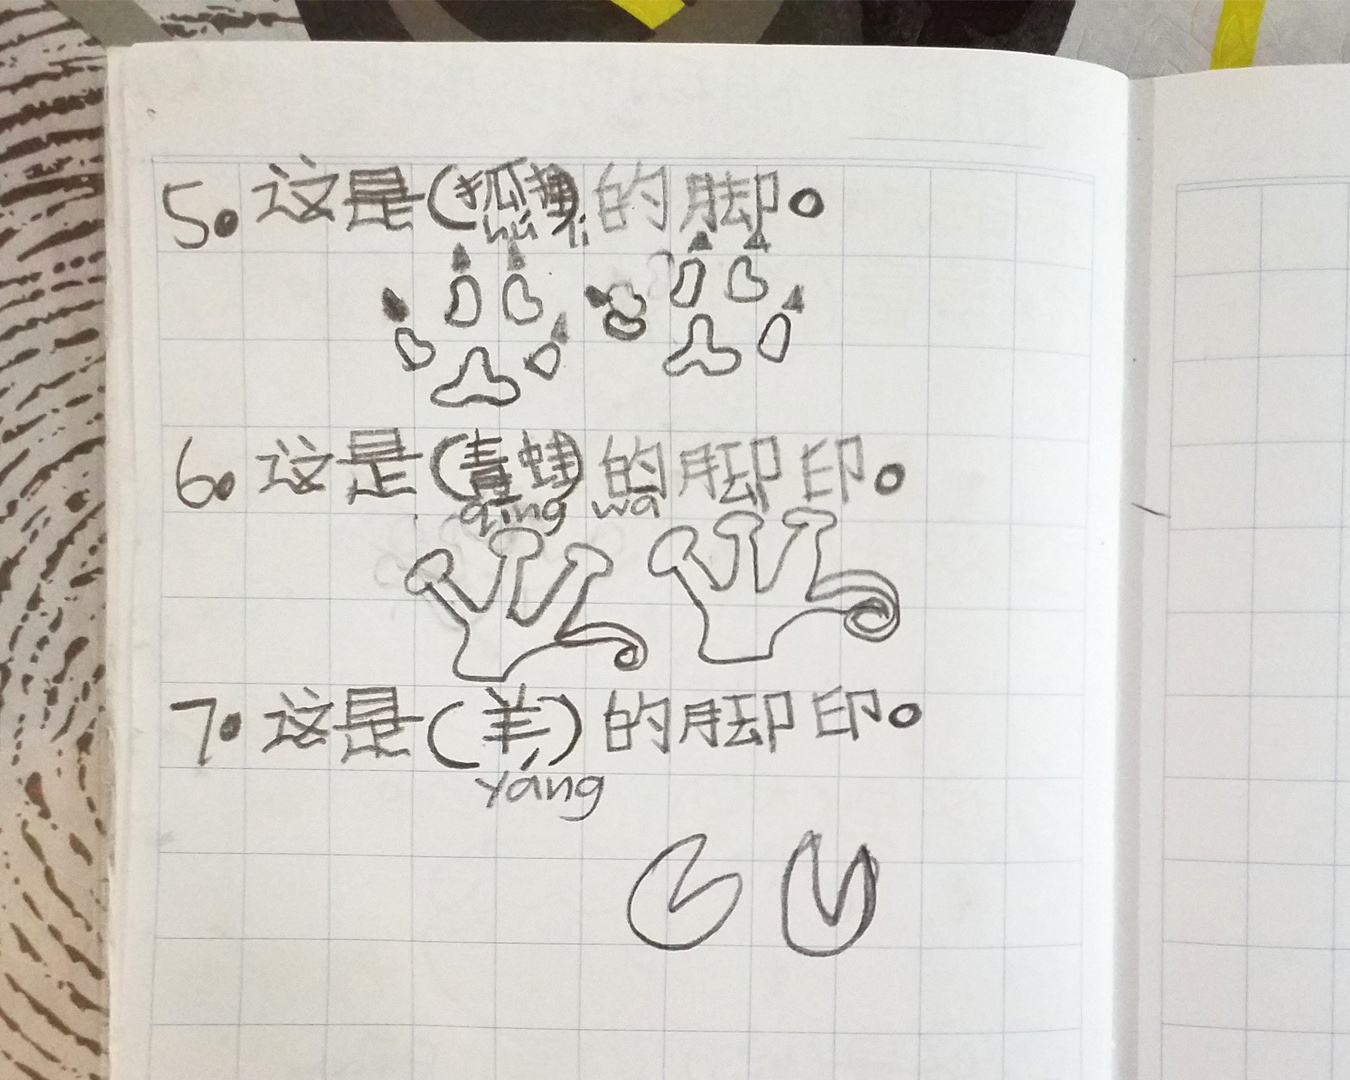 5。这是(狐狸)的脚。
hú li
6。这是(青蛙)的脚印。
qīng wā
7。这是(羊)的脚印。
yáng